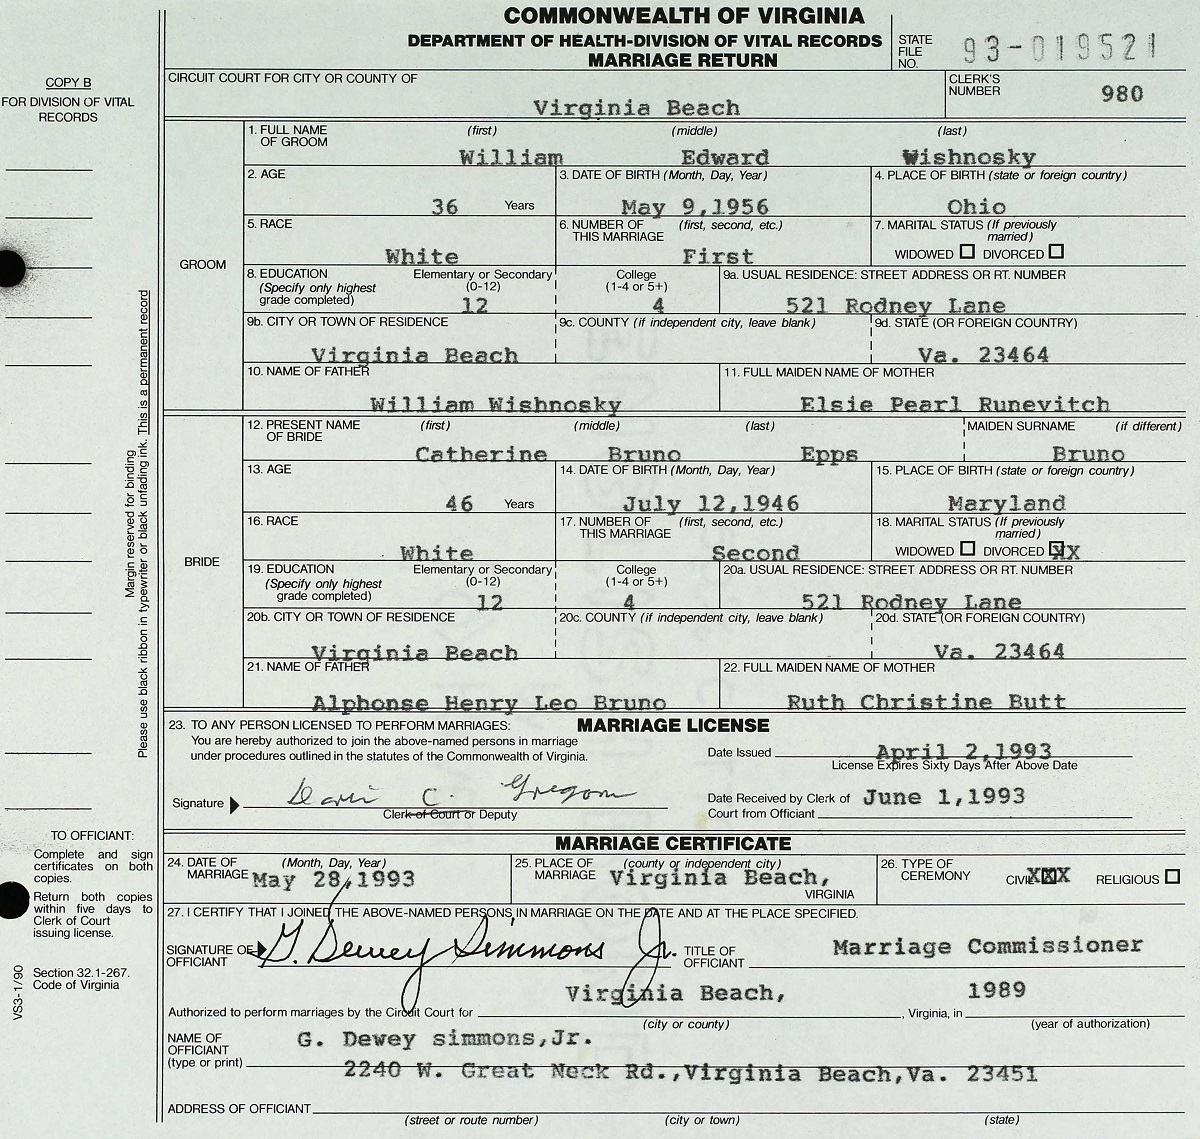 COMMONWEALTH OF VIRGINIA
DEPARTMENT OF HEALTH-DIVISION OF VITAL RECORDS
MARRIAGE RETURN
STATE FILE NO. 93-019521
COPY B
FOR DIVISION OF VITAL RECORDS
CIRCUIT COURT FOR CITY OR COUNTY OF
Virginia Beach
CLERK'S NUMBER 980
GROOM
1. FULL NAME OF GROOM (first) (middle) (last)
William Edward Wishnosky
2. AGE 3. DATE OF BIRTH (Month, Day, Year) 4. PLACE OF BIRTH (state or foreign country)
36 Years May 9,1956 Ohio
5. RACE 6. NUMBER OF THIS MARRIAGE (first, second, etc.) 7. MARITAL STATUS (If previously married)
White First WIDOWED ☐ DIVORCED ☐
8. EDUCATION (Specify only highest grade completed) Elementary or Secondary (0-12) College (1-4 or 5+) 9a. USUAL RESIDENCE: STREET ADDRESS OR RT. NUMBER
12 4 521 Rodney Lane
9b. CITY OR TOWN OF RESIDENCE 9c. COUNTY (if independent city, leave blank) 9d. STATE (OR FOREIGN COUNTRY)
Virginia Beach Va. 23464
10. NAME OF FATHER 11. FULL MAIDEN NAME OF MOTHER
William Wishnosky Elsie Pearl Runevitch
BRIDE
12. PRESENT NAME OF BRIDE (first) (middle) (last) MAIDEN SURNAME (if different)
Catherine Bruno Epps Bruno
13. AGE 14. DATE OF BIRTH (Month, Day, Year) 15. PLACE OF BIRTH (state or foreign country)
46 Years July 12,1946 Maryland
16. RACE 17. NUMBER OF THIS MARRIAGE (first, second, etc.) 18. MARITAL STATUS (If previously married)
White Second WIDOWED ☐ DIVORCED ☒XX
19. EDUCATION (Specify only highest grade completed) Elementary or Secondary (0-12) College (1-4 or 5+) 20a. USUAL RESIDENCE: STREET ADDRESS OR RT. NUMBER
12 4 521 Rodney Lane
20b. CITY OR TOWN OF RESIDENCE 20c. COUNTY (if independent city, leave blank) 20d. STATE (OR FOREIGN COUNTRY)
Virginia Beach Va. 23464
21. NAME OF FATHER 22. FULL MAIDEN NAME OF MOTHER
Alphonse Henry Leo Bruno Ruth Christine Butt
Margin reserved for binding
Please use black ribbon in typewriter or black unfading ink. This is a permanent record
23. TO ANY PERSON LICENSED TO PERFORM MARRIAGES: MARRIAGE LICENSE
You are hereby authorized to join the above-named persons in marriage
under procedures outlined in the statutes of the Commonwealth of Virginia.
Date Issued April 2,1993
License Expires Sixty Days After Above Date
Signature C.
Clerk of Court or Deputy
Date Received by Clerk of Court from Official June 1,1993
MARRIAGE CERTIFICATE
24. DATE OF MARRIAGE (Month, Day, Year) 25. PLACE OF MARRIAGE (county or independent city) 26. TYPE OF CEREMONY
May 28,1993 Virginia Beach, VIRGINIA CIVIL XXX RELIGIOUS ☐
27. I CERTIFY THAT I JOINED THE ABOVE-NAMED PERSONS IN MARRIAGE ON THE DATE AND AT THE PLACE SPECIFIED.
SIGNATURE OF OFFICIANT G. Dewey Simmons Jr. TITLE OF OFFICIANT Marriage Commissioner
Virginia Beach, 1989
Authorized to perform marriages by the Circuit Court for , Virginia, in
(city or county) (year of authorization)
NAME OF OFFICIANT (type or print) G. Dewey simmons,Jr.
2240 W. Great Neck Rd.,Virginia Beach,Va. 23451
ADDRESS OF OFFICIANT
(street or route number) (city or town) (state)
TO OFFICIANT:
Complete and sign
certificates on both
copies.
Return both copies
within five days to
Clerk of Court
issuing license.
Section 32.1-267.
Code of Virginia
VS3-1/90